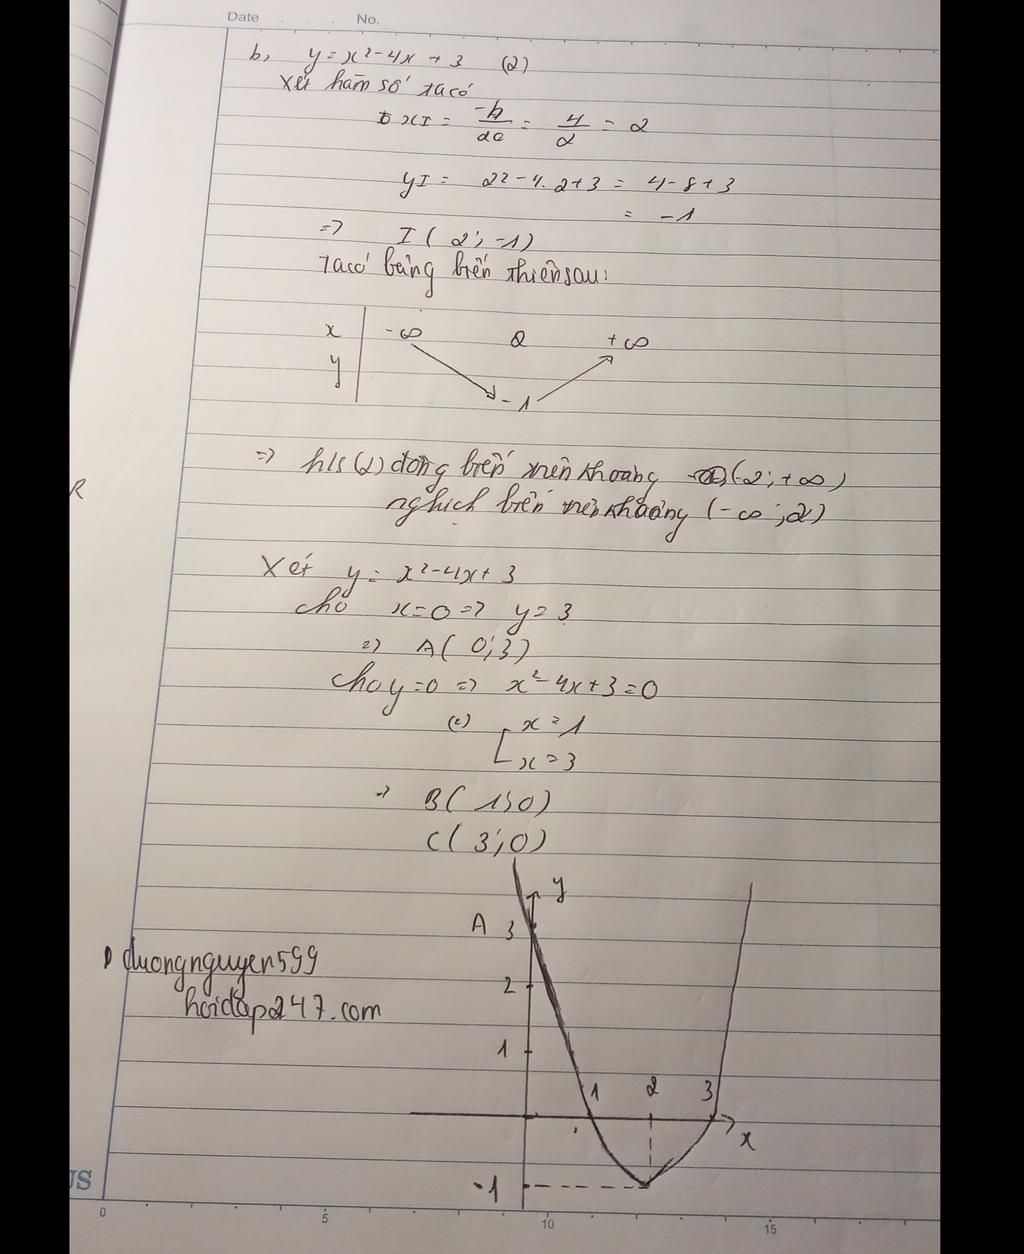 Date . . . No.
b, y = x² - 4x + 3 (2)
Xét hàm số ta có
xI = -b/2a = 4/2 = 2
yI = 2² - 4.2 + 3 = 4 - 8 + 3
= -1
=> I ( 2 ; -1 )
Ta có bảng biến thiên sau:
x -∞ 2 +∞
y
-1
=> h/s (2) đồng biến trên khoảng (-2 ; +∞)
nghịch biến trên khoảng (-∞ ; 2)
R
Xét y = x² - 4x + 3
cho x = 0 => y = 3
=> A ( 0 ; 3 )
Cho y = 0 => x² - 4x + 3 = 0
x = 1
x = 3
=> B ( 1 ; 0 )
C ( 3 ; 0 )
y
A 3
duongnguyen599
2
hoidap247.com
1
1 2 3
x
-1
US
0 5 10 15